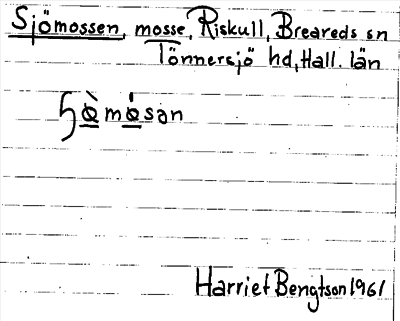 Sjömossen, mosse, Riskull, Breareds sn
Tönnersjö hd, Hall. län
Harriet Bengtson 1961